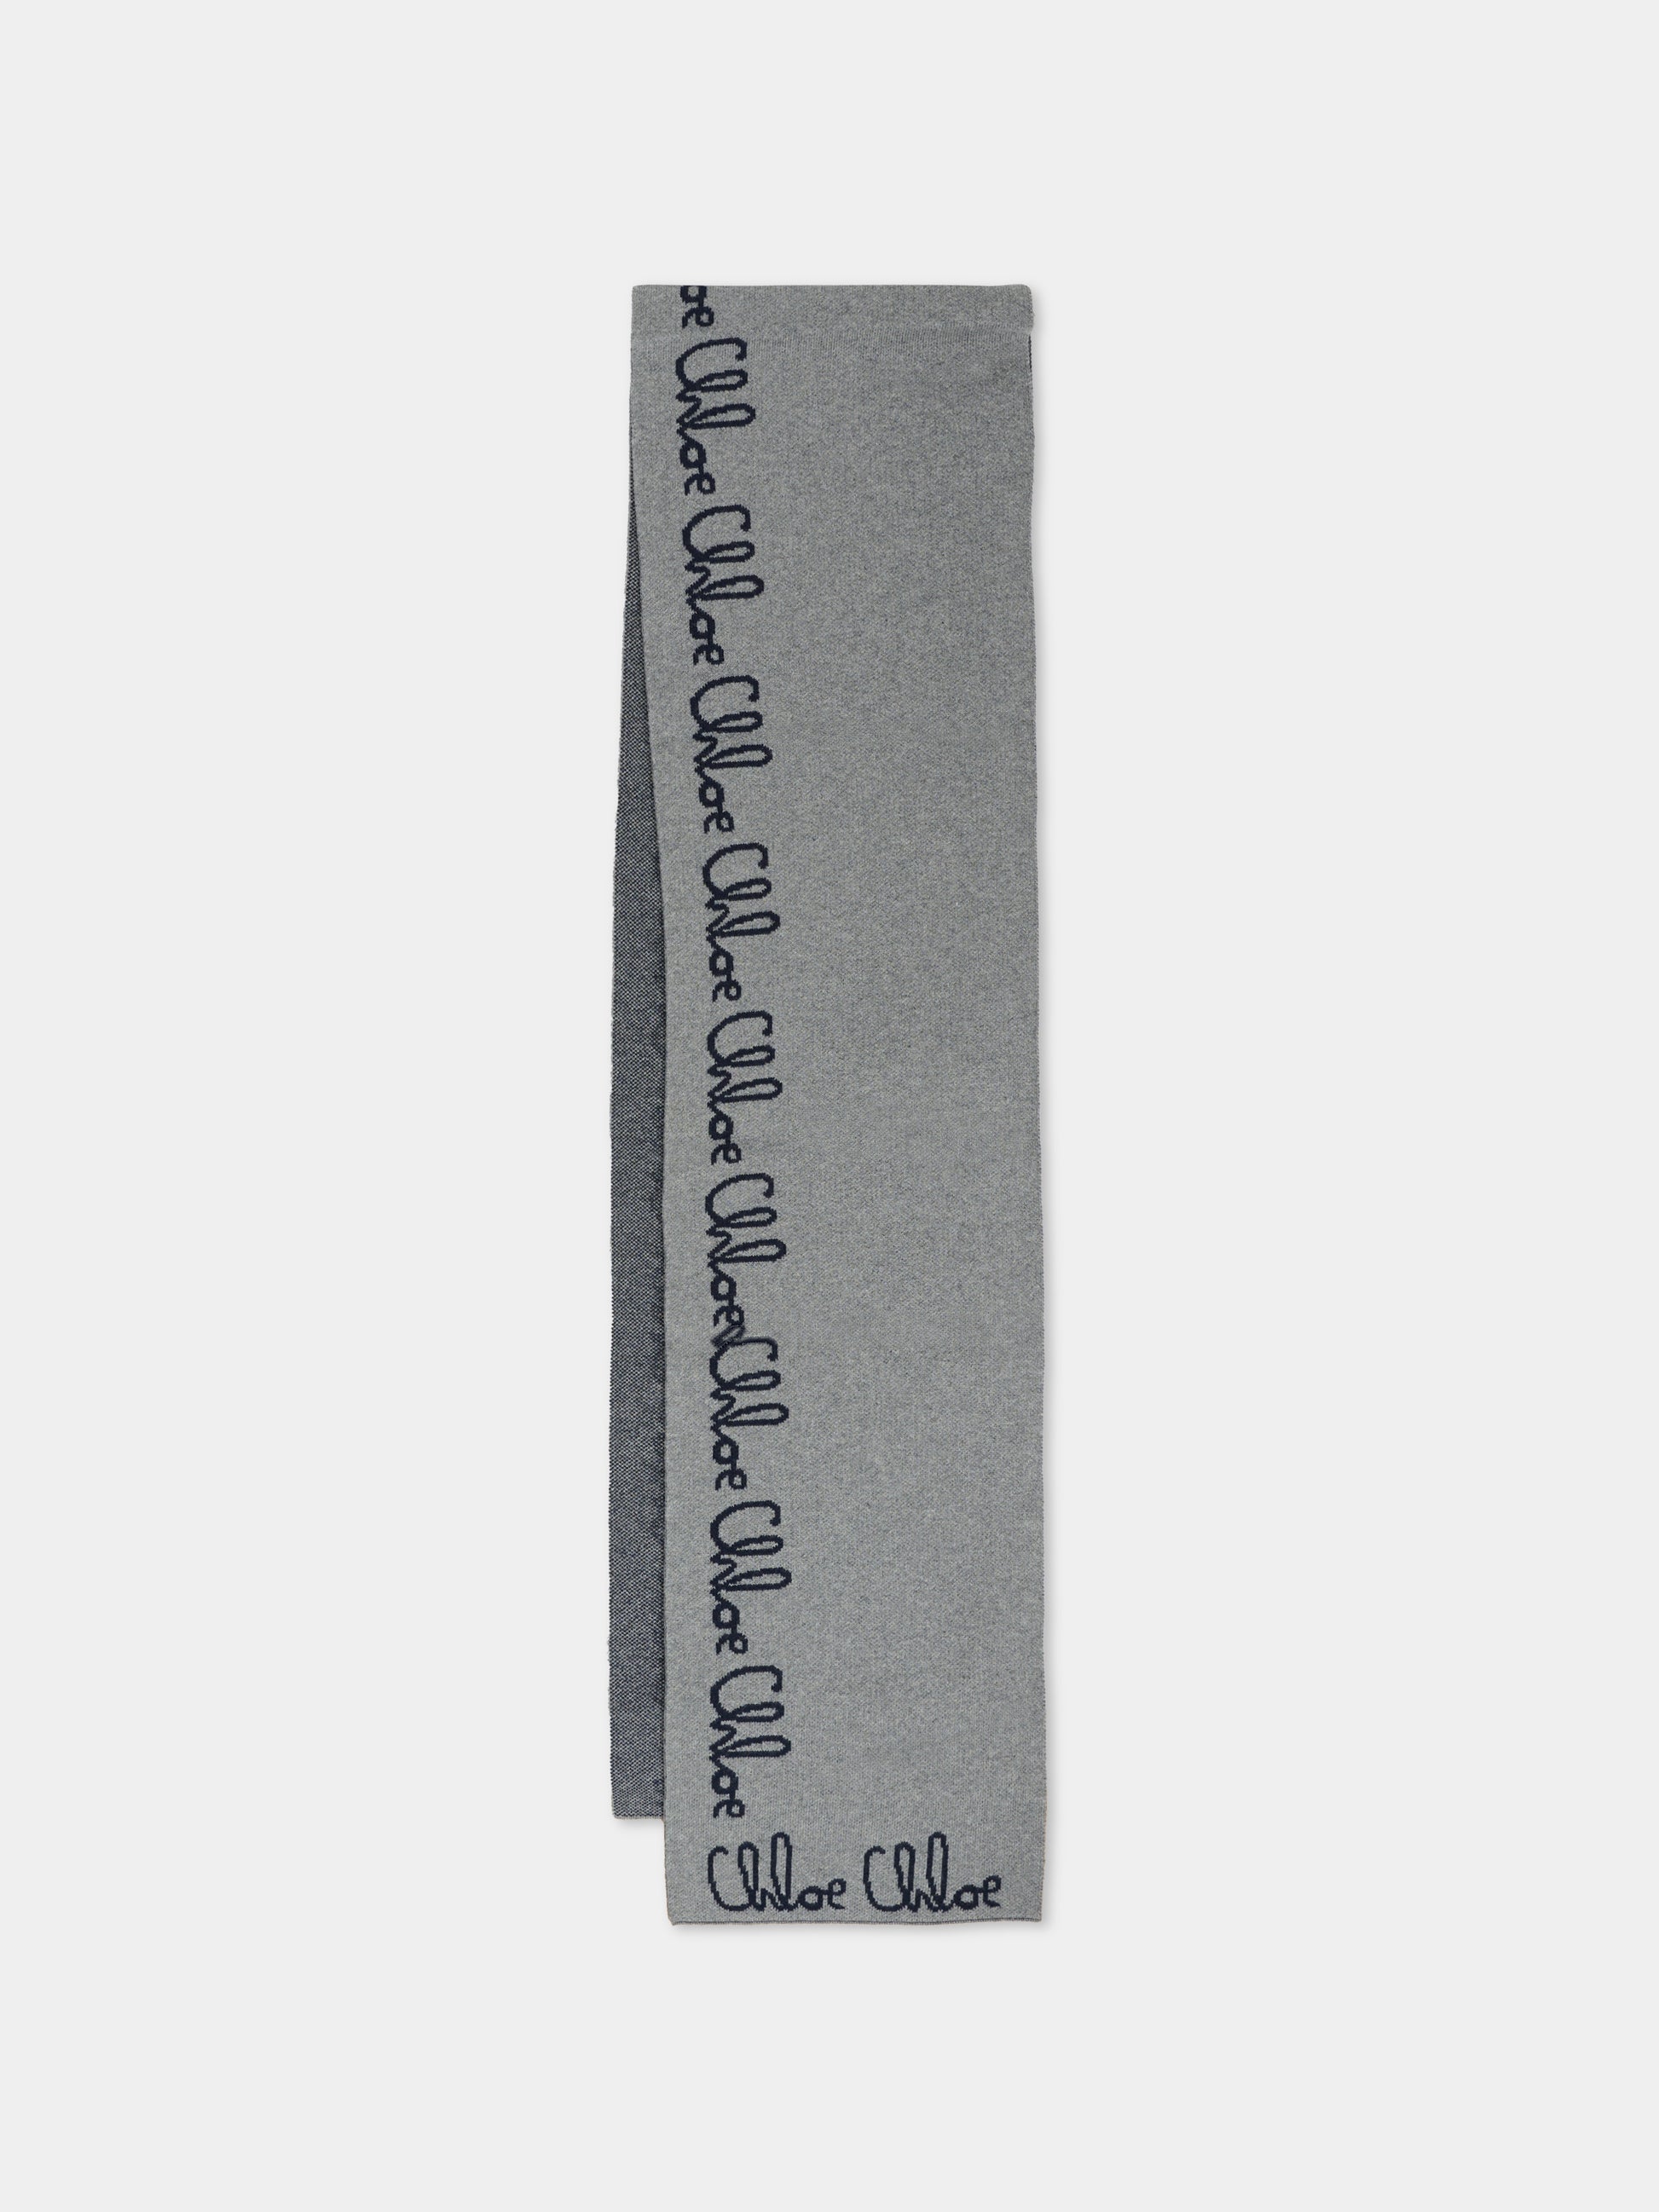 oe Chloe Chloe Chloe Chloe Chloe Chloe Chloe Chloe Chloe
Chloe Chloe